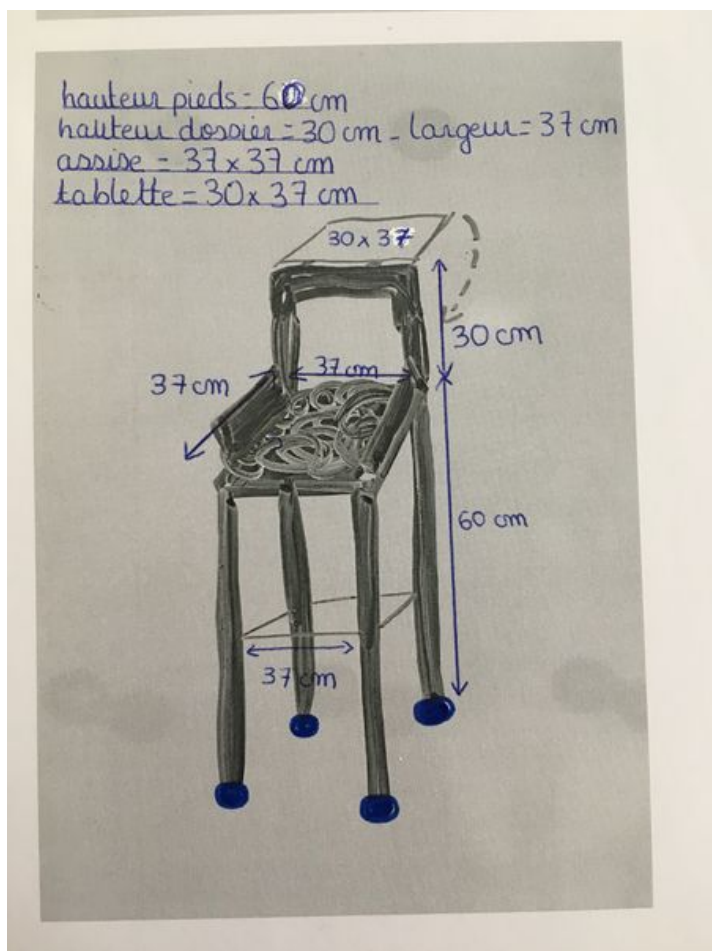 hauteur pieds = 60 cm
hauteur dossier = 30 cm - largeur = 37 cm
assise = 37 x 37 cm
tablette = 30 x 37 cm
30 x 37
30 cm
37 cm
37 cm
60 cm
37 cm